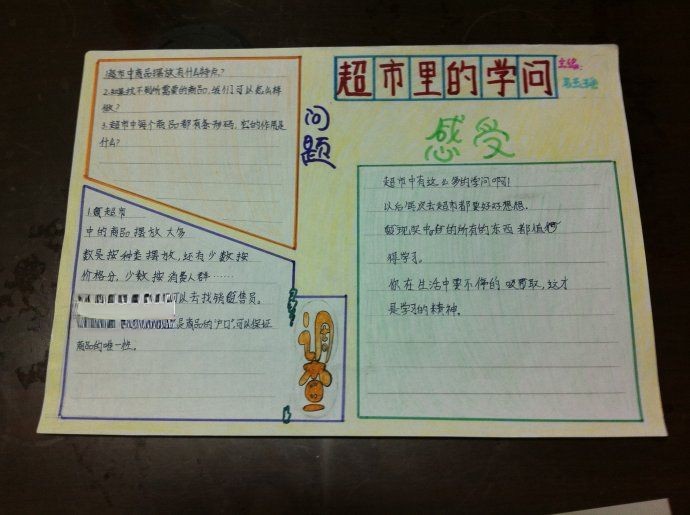 超市里的学问
主编:
问题
1.超市中商品摆放有什么特点?
2.如果找不到所需要的商品,我们可以怎么样
做?
3.超市中每个商品都有条形码,它的作用是
什么?
1.超市
中的商品摆放大多
数是按种类摆放,还有少数按
价格分,少数按消费人群……
可以去找销售员。
是商品的“户口”,可以保证
商品的唯一性。
感受
超市中有这么多的学问啊!
以后每次去超市都要好好想想,
发现其中的所有的东西都值
得学习。
你在生活中要不停的吸取,这才
是学习的精神。